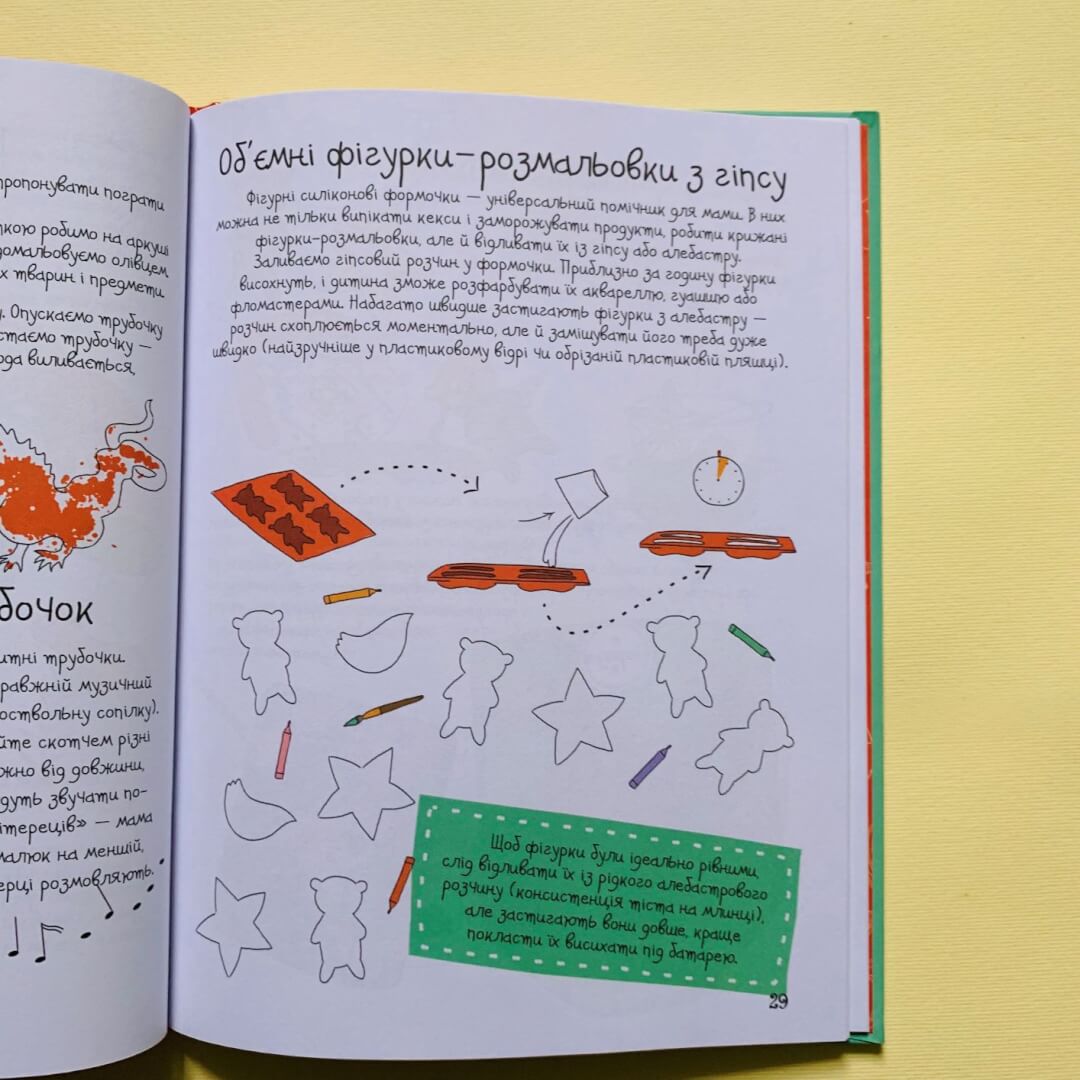 пропонувати пограти
робимо на аркуші
домальовуємо олівцем
тварин і предмети
Опускаємо трубочку
трубочку —
виливається,
трубочки.
музичний
сопілку).
скотчем різні
від довжини,
звучати по-
— мама
на меншій,
розмовляють.
Об'ємні фігурки-розмальовки з гіпсу
Фігурні силіконові формочки — універсальний помічник для мами. В них
можна не тільки випікати кекси і заморожувати продукти, робити крижані
фігурки-розмальовки, але й відливати їх із гіпсу або алебастру.
Заливаємо гіпсовий розчин у формочки. Приблизно за годину фігурки
висохнуть, і дитина зможе розфарбувати їх аквареллю, гуашшю або
фломастерами. Набагато швидше застигають фігурки з алебастру —
розчин схоплюється моментально, але й замішувати його треба дуже
швидко (найзручніше у пластиковому відрі чи обрізаній пластиковій пляшці).
Щоб фігурки були ідеально рівними,
слід відливати їх із рідкого алебастрового
розчину (консистенція тіста на млинці),
але застигають вони довше, краще
покласти їх висихати під батарею.
29